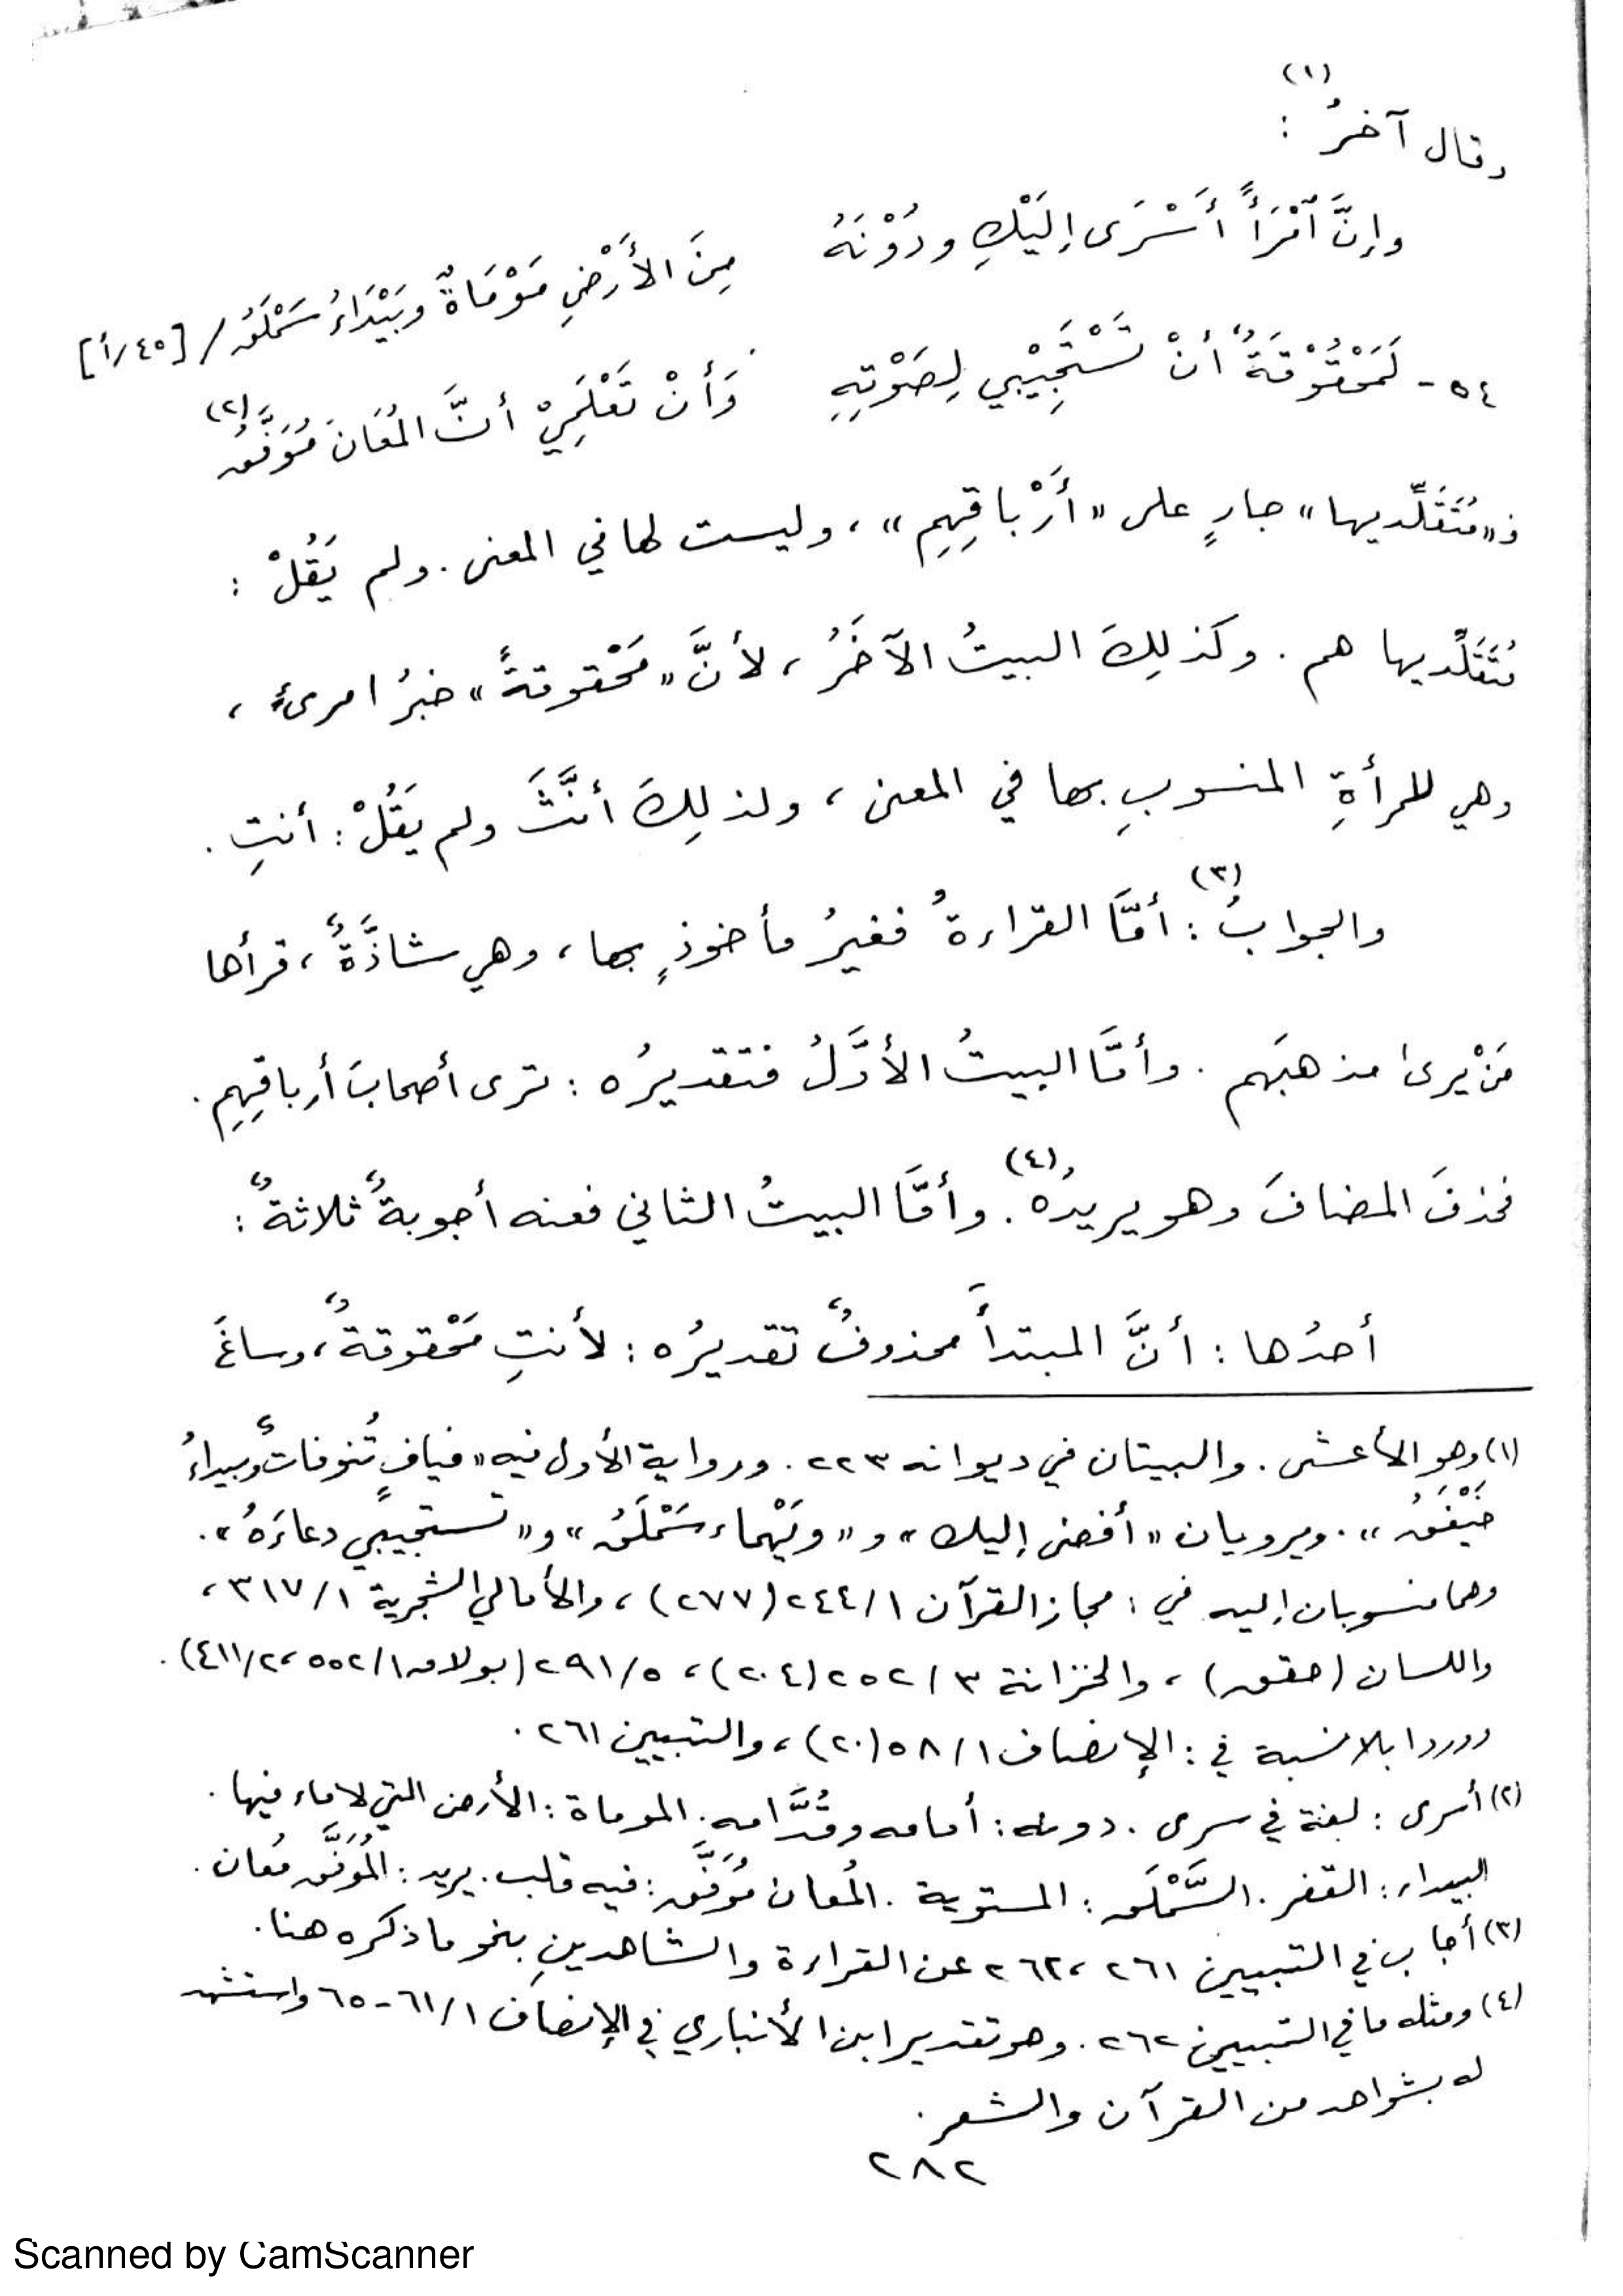 (١)
وقال آخرُ :
وإنَّ ٱمْرَأً أَسْرَى إِلَيْكِ ودُوْنَهُ مِنَ الأَرْضِ مَوْمَاةٌ وبَيْدَاءُ سَمْلَقُ / [٤٥/أ]
٥٤ - لَمَحْقُوْقَةٌ أنْ تَسْتَجِيْبي لِصَوْتِهِ وَأَنْ تَعْلَمِيْ أنَّ المُعَانَ مُوَفَّقُ (٢)
فـ«مُتَقَلِّديها» جارٍ على «أَرْباقِهِم»، وليست لها في المعنى. ولم يَقُلْ :
مُتَقَلِّديها هم. وكذلِكَ البيتُ الآخَرُ، لأنَّ «مَحْقوقةً» خبرُ امرىءٍ،
وهي للمرأةِ المنسوبِ بها في المعنى، ولذلِكَ أنَّثَ ولم يَقُلْ : أنتِ.
والجوابُ (٣) : أمَّا القراءةُ فغيرُ مأخوذٍ بها، وهي شاذَّةٌ، قرأها
مَنْ يرى مذهبَهم. وأمَّا البيتُ الأوَّلُ فتقديرُه : ترى أصحابَ أرباقِهِم.
فحذفَ المضافَ وهو يريدُه (٤). وأمَّا البيتُ الثاني فعنه أجوبةٌ ثلاثةٌ :
أحدُها : أنَّ المبتدأَ محذوفٌ تقديرُه : لأنتِ مَحْقوقةٌ، وساغَ
(١) وهو الأعشى. والبيتان في ديوانه ٢٢٣. ورواية الأول فيه «فيافٍ تُنوفاتٌ وبيداءُ
خَيْفَقُ». ويرويان «أفضى إليك» و«ويَهْماء سَمْلَقُ» و«تستجيبي دعاءَهُ».
وهما منسوبان إليه في : مجاز القرآن ٢٤٤/١ (٢٧٧)، والأمالي الشجرية ٣١٧/١،
واللسان (حقق)، والخزانة ٢٥٢/٣ (٢٠٤)، ٢٩١/٥ (بولاق ٥٥٢/١، ٤١١/٢).
ووردا بلا نسبة في : الإنصاف ٥٨/١ (٢٠)، والتبيين ٢٦١.
(٢) أسرى : لغة في سرى. دونه : أمامه وقُدَّامه. الموماة : الأرض التي لا ماء فيها.
البيداء : القفر. السَّمْلَق : المستوية. المُعان مُوَفَّق : فيه قلب. يريد : المُوَفَّق مُعان.
(٣) أجاب في التبيين ٢٦١، ٢٦٢ عن القراءة والشاهدينِ بنحو ما ذكره هنا.
(٤) ومثله ما في التبيين ٢٦٢. وهو تقدير ابن الأنباري في الإنصاف ٦١/١-٦٥ واستشهد
له بشواهد من القرآن والشعر.
٢٨٢
Scanned by CamScanner